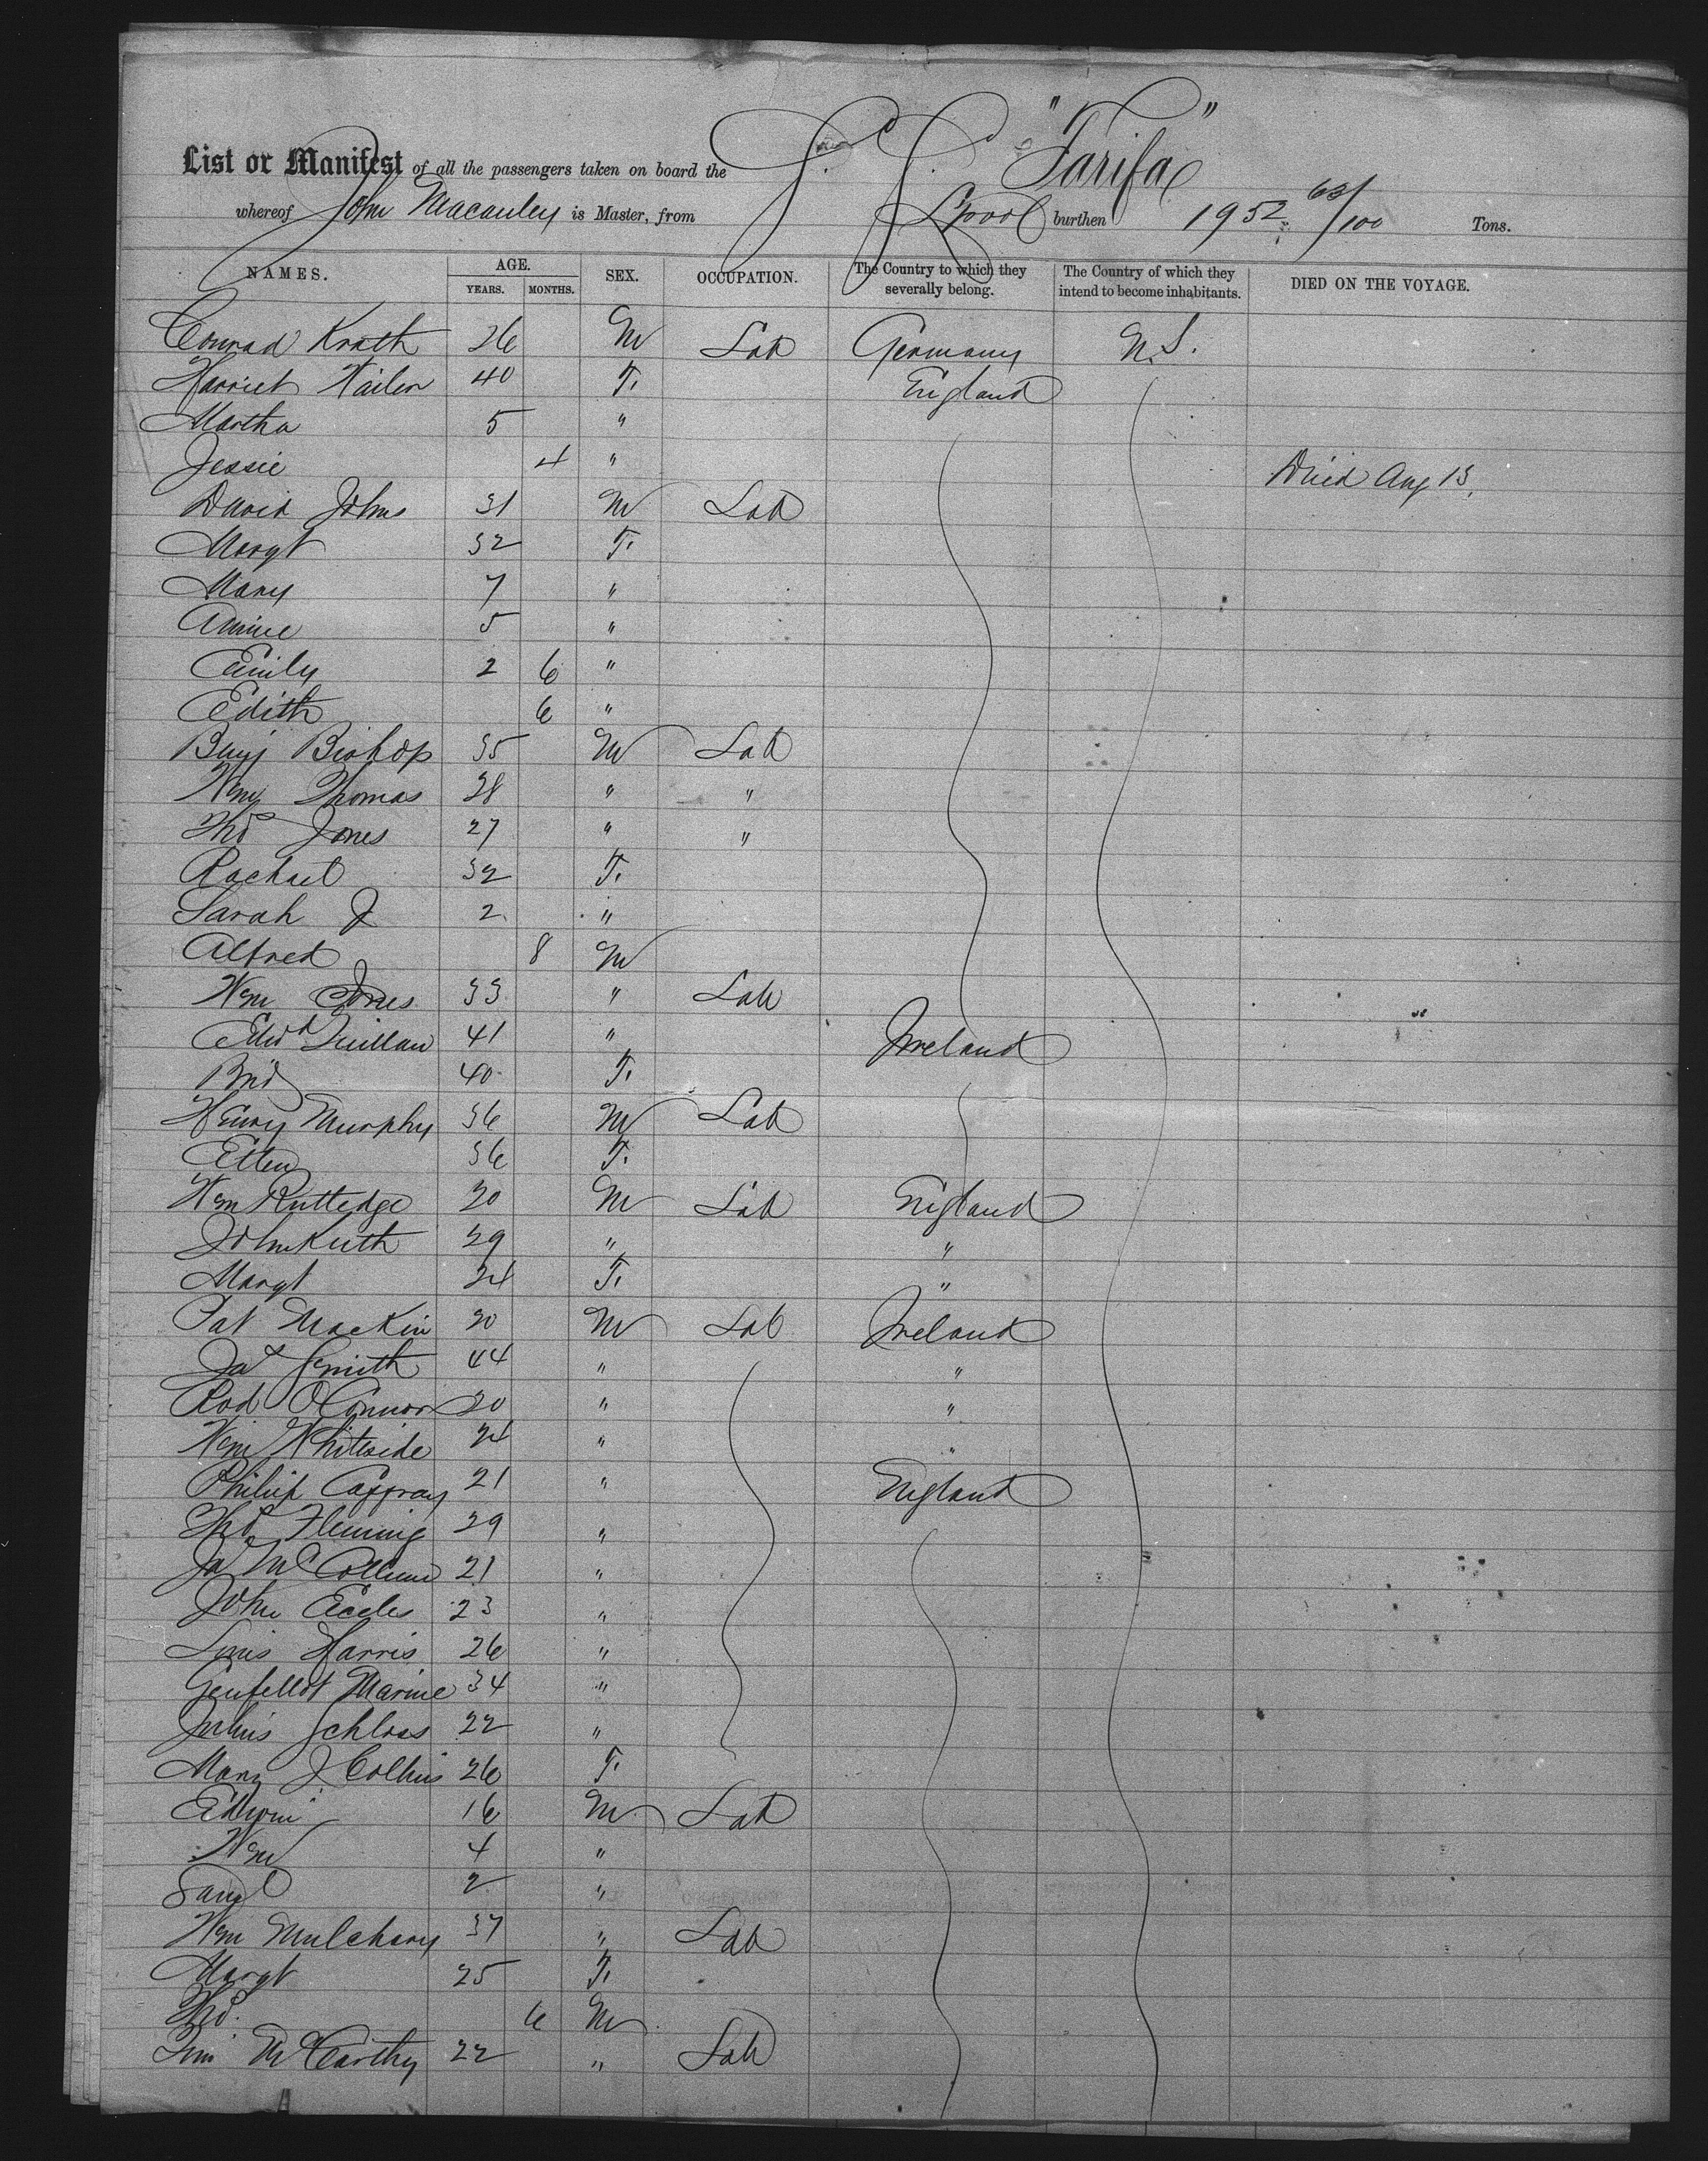 S. S. "Tarifa"
List or Manifest of all the passengers taken on board the
whereof John Macauley is Master, from L'pool burthen 1952 63/100 Tons.
NAMES. AGE. SEX. OCCUPATION. The Country to which they severally belong. The Country of which they intend to become inhabitants. DIED ON THE VOYAGE.
YEARS. MONTHS.
Conrad Krath 26 M Lab Germany
Harriet 40 F. England
Martha 5 "
Jessie 4 " Died Aug 13.
David Johns 31 M Lab
Margt 32 F.
Mary 7 "
Annie 5 "
Emily 2 6 "
Edith 6 "
Benj Bishop 35 M Lab
Wm Thomas 28 " "
Thos Jones 27 " "
Rachael 32 F.
Sarah J 2 "
Alfred 8 M
Wm Jones 33 " Lab
Edwd Quillan 41 " Ireland
Brid 40 F.
Henry Murphy 36 M Lab
Ellen 36 F.
Wm Rutledge 20 M Lab England
John Kuth 29 " "
Margt 24 F. "
Pat Mackin 20 M Lab Ireland
Jas Smith 44 " "
Rod O'Connor 20 " "
Wm Whiteside 24 " "
Philip Caffray 21 " England
Thos Fleming 29 "
Jas McCollum 21 "
John Eccles 23 "
Louis Harris 26 "
Marine 34 "
Julius Schloss 22 "
Mary J. Collins 26 F.
Edwin 16 M Lab
Wm 4 "
Saml 2 "
Wm Mulchay 37 " Lab
Margt 25 F.
Thos. 6 M
Tim McCarthy 22 " Lab